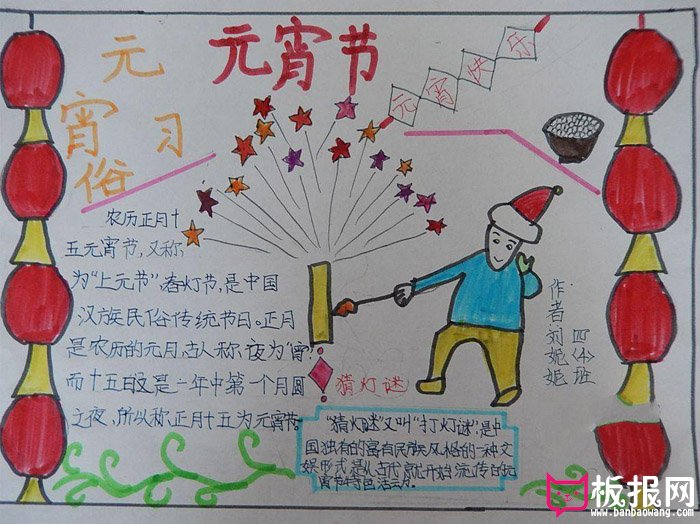 元宵节
元
宵 习
俗
元宵快乐
农历正月十
五元宵节，又称
为“上元节”，春灯节，是中国
汉族民俗传统节日。正月
是农历的元月，古人称，夜为“宵”，
而十五日又是一年中第一个月圆
之夜，所以称，正月十五为元宵节
猜灯谜
作者刘妮妮
四〈4〉班
“猜灯谜”又叫“打灯谜”；是中
国独有的富有民族风格的一种文
娱形式，是从古代就开始流传的元
宵节特色活动。
板报网
www.banbaowang.com